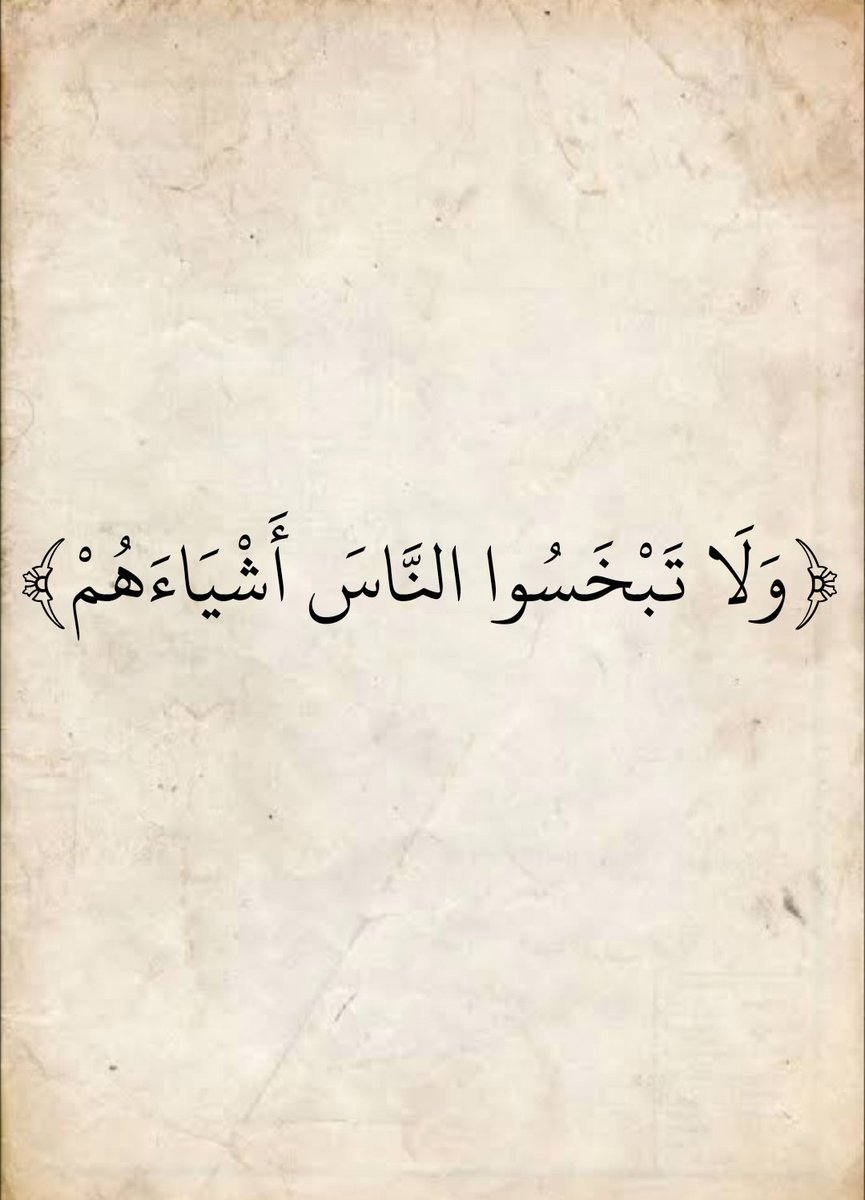 ﴿وَلَا تَبْخَسُوا النَّاسَ أَشْيَاءَهُمْ﴾